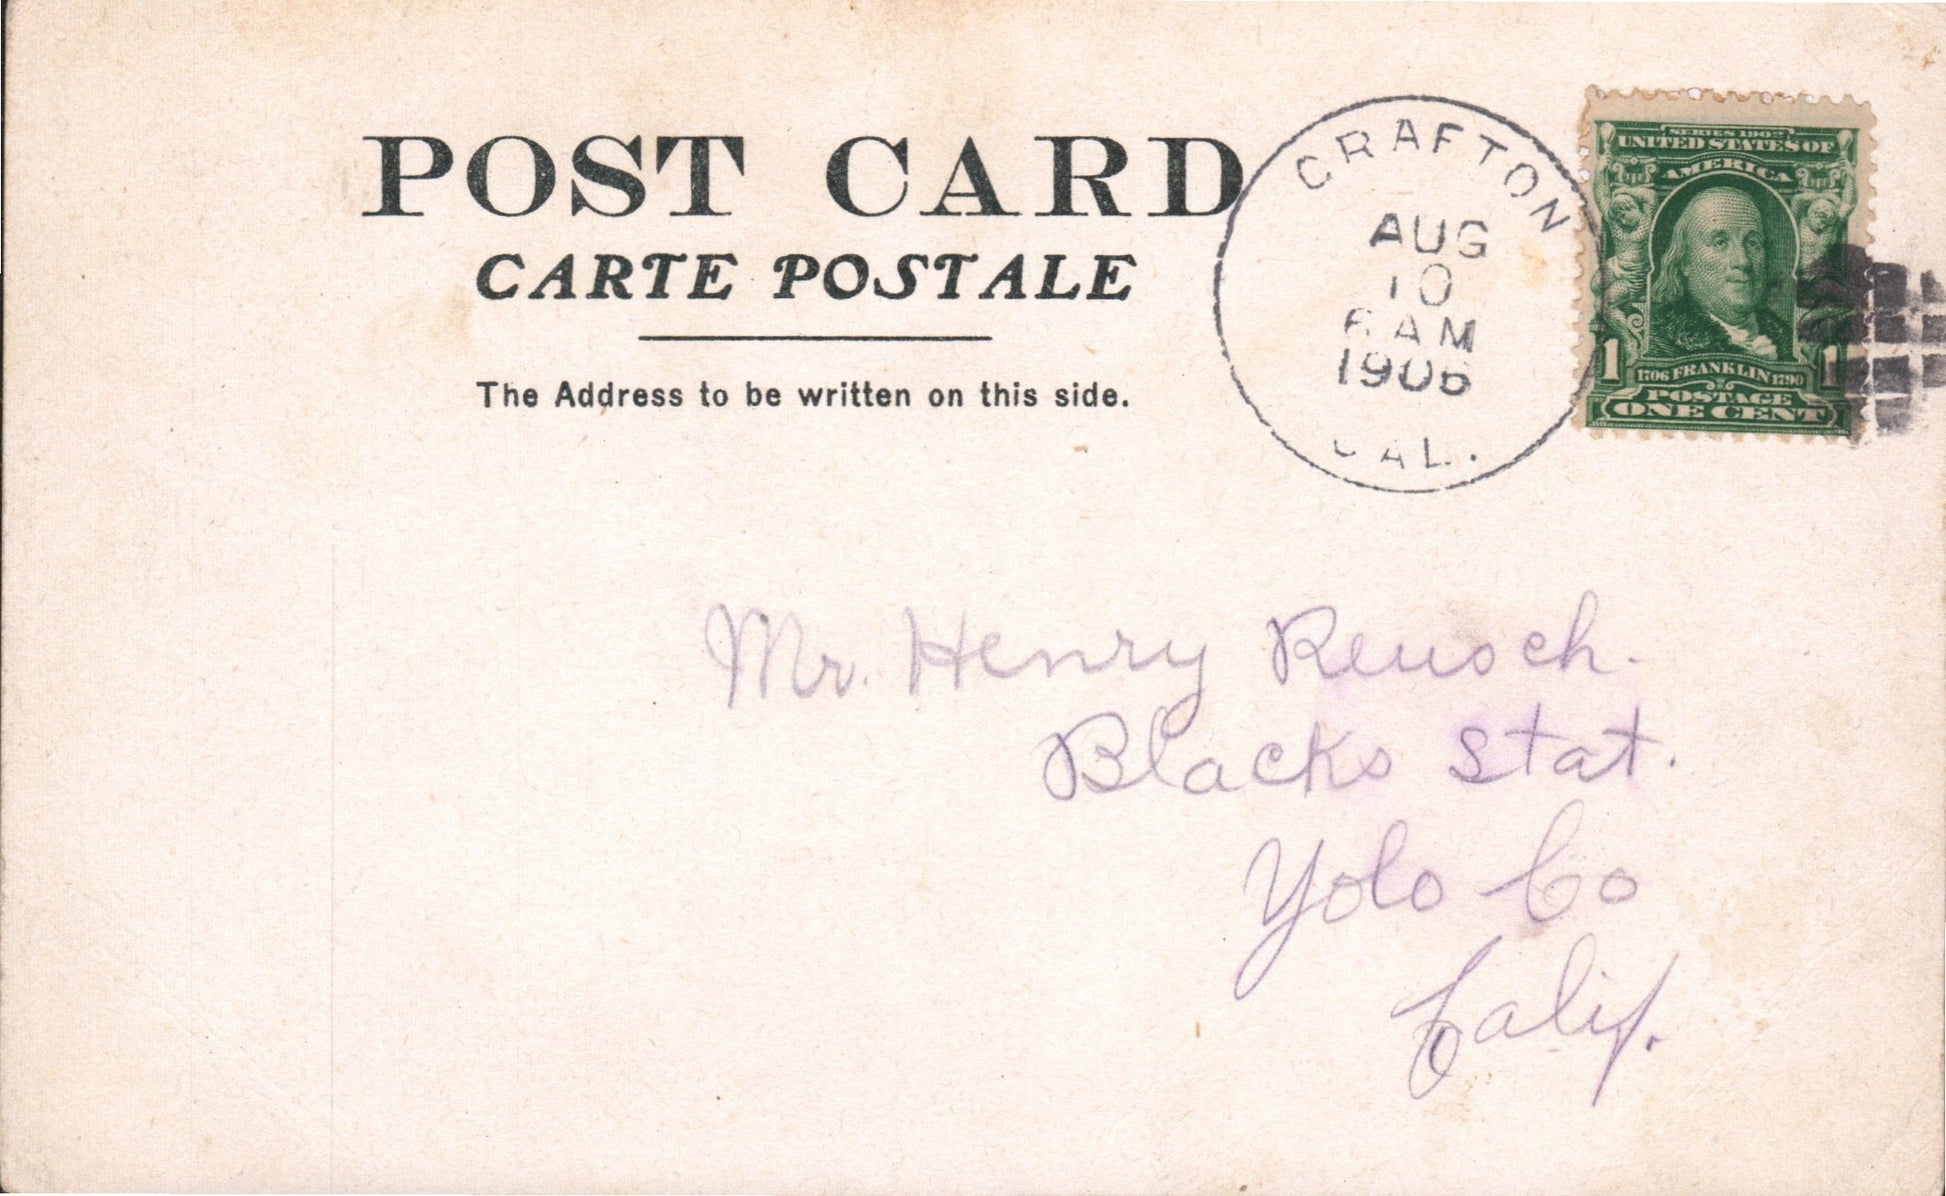 POST CARD
CARTE POSTALE
The Address to be written on this side.
CRAFTON
AUG
10
AM
1906
CAL.
SERIES 1902
UNITED STATES OF
AMERICA
1706 FRANKLIN 1790
1 1
POSTAGE
ONE CENT
Mr. Henry Reusch.
Blacks Stat.
Yolo Co
Calif.